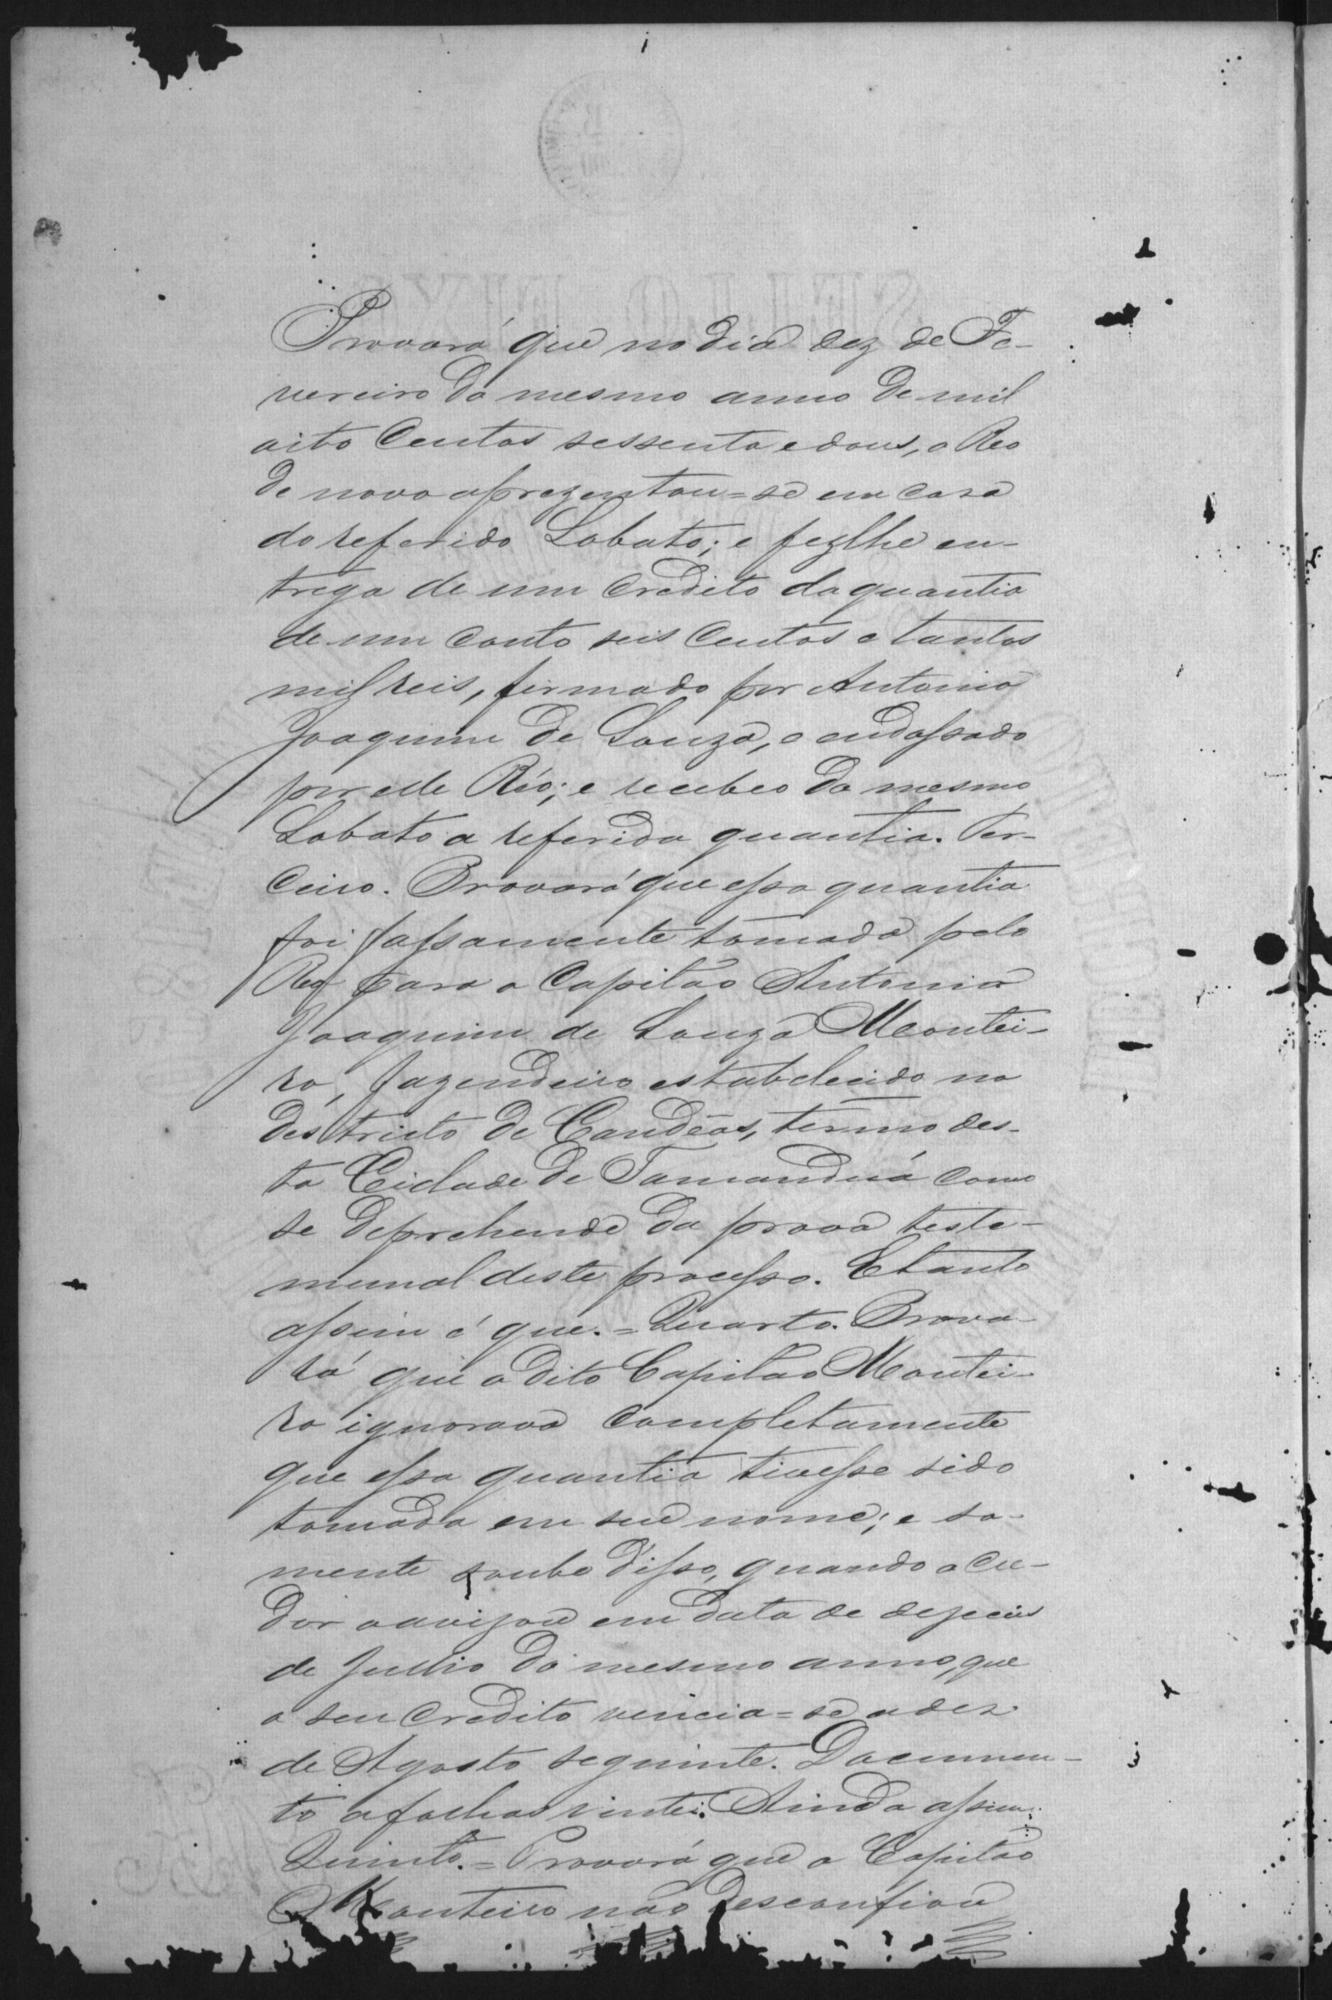 Provará que no dia dez de Fe-
vereiro do mesmo anno de mil
oito centos sessenta e dous, o Reo
de novo aprezentou=se em casa
do referido Lobato; e fezlhe en-
trega de um credito da quantia
de um conto seis centos e tantos
mil reis, firmado por Antonio
Joaquim de Souza, e endossado
por elle Réo; e recebeo do mesmo
Lobato a referida quantia. Ter-
ceiro. Provará que essa quantia
foi falsamente tomada pelo
Reo para o Capitão Antonio
Joaquim de Souza Montei-
ro, fazendeiro estabelecido no
destricto de Candêas, termo des-
ta Cidade de Tamanduá como
se deprehende da prova teste-
munal deste processo. E tanto
assim é que.= Quarto. Prova-
rá que o dito Capitão Montei-
ro ignorava completamente
que essa quantia tivesse sido
tomada em seu nome; e so-
mente soube disso, quando o cre-
dor o avisou em data de deseceis
de Julho do mesmo anno, que
o seu credito vencia=se a dez
de Agosto seguinte. Documen-
to a folhas vinte. Ainda assim
Quinto.= Provará que o Capitão
Monteiro não desconfiou
SELLO FIXO